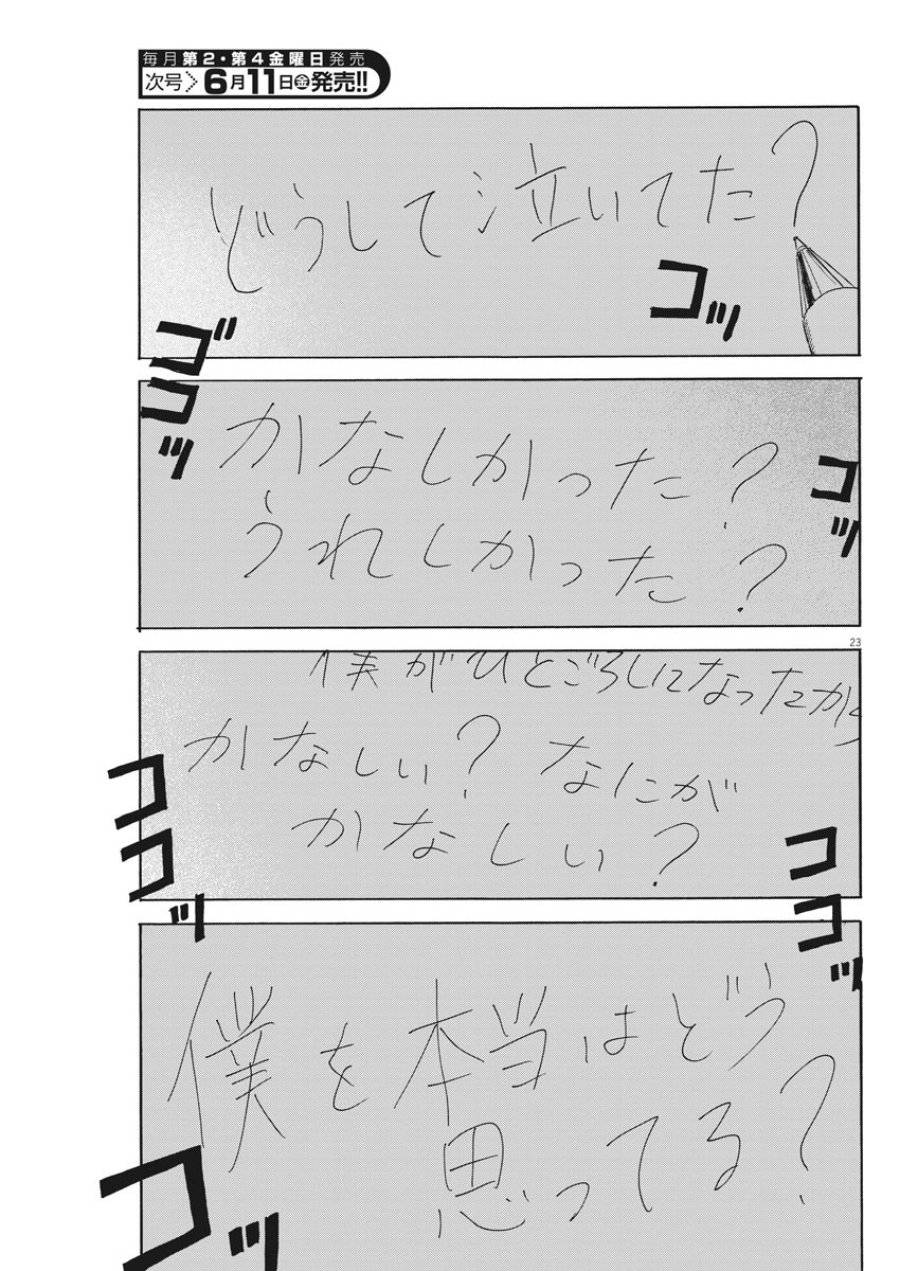 毎月第2・第4金曜日発売
次号 6月11日㊎発売!!
どうして泣いてた?
コッ
ゴ
コッ
かなしかった?
コッ
うれしかった?
23
僕がひとごろしになったから
かなしい? なにが
かなしい?
ココッ
ココッ
僕を本当はどう
思ってる?
コッ